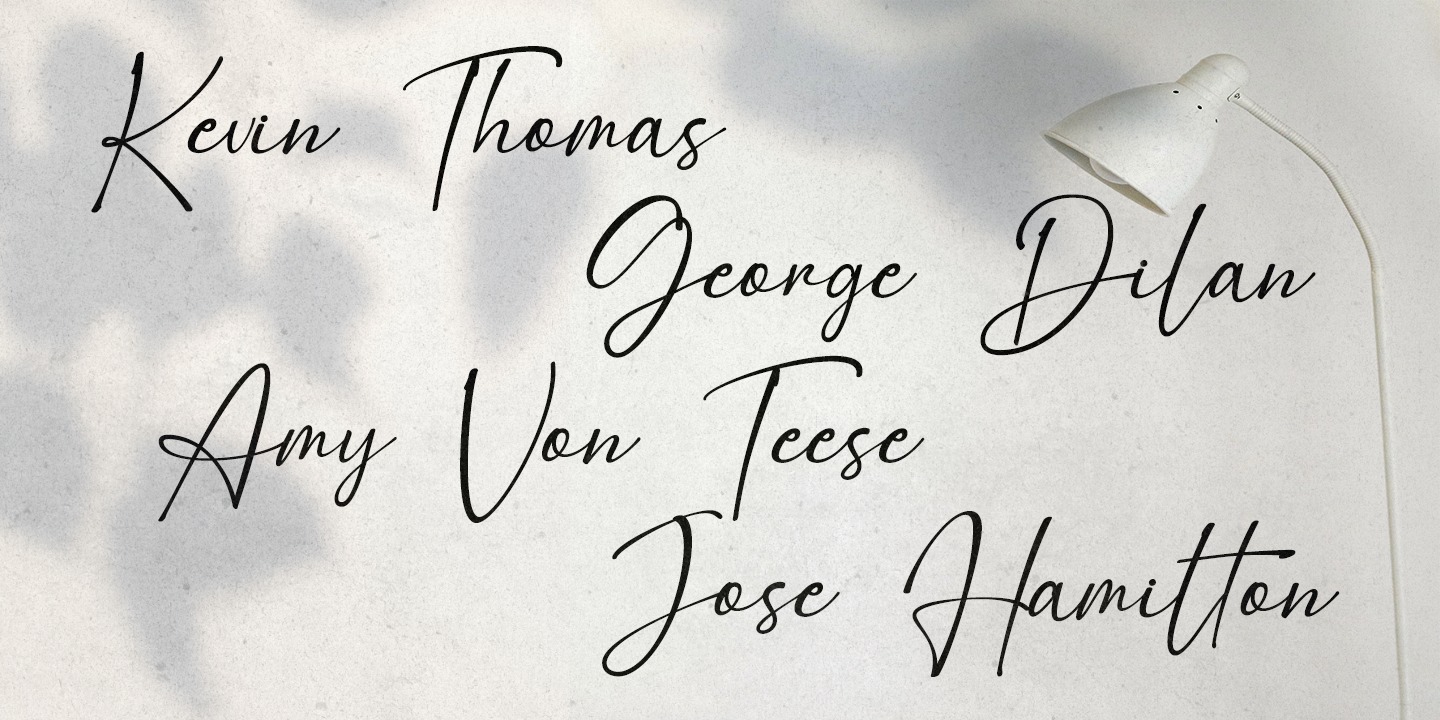 Kevin Thomas
George Dilan
Amy Von Teese
Jose Hamilton